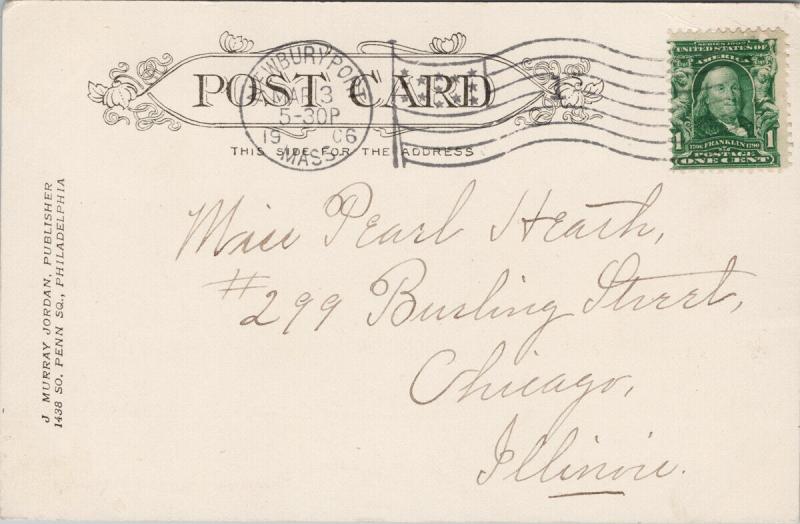 POST CARD
THIS SIDE FOR THE ADDRESS
NEWBURYPORT
MAR 3
5-30P
1906
MASS.
SERIES 1902
UNITED STATES OF
AMERICA
1706 FRANKLIN 1790
POSTAGE
1 ONE CENT 1
Miss Pearl Heath,
#299 Burling Street,
Chicago,
Illinois.
J MURRAY JORDAN, PUBLISHER
1438 SO. PENN SQ., PHILADELPHIA